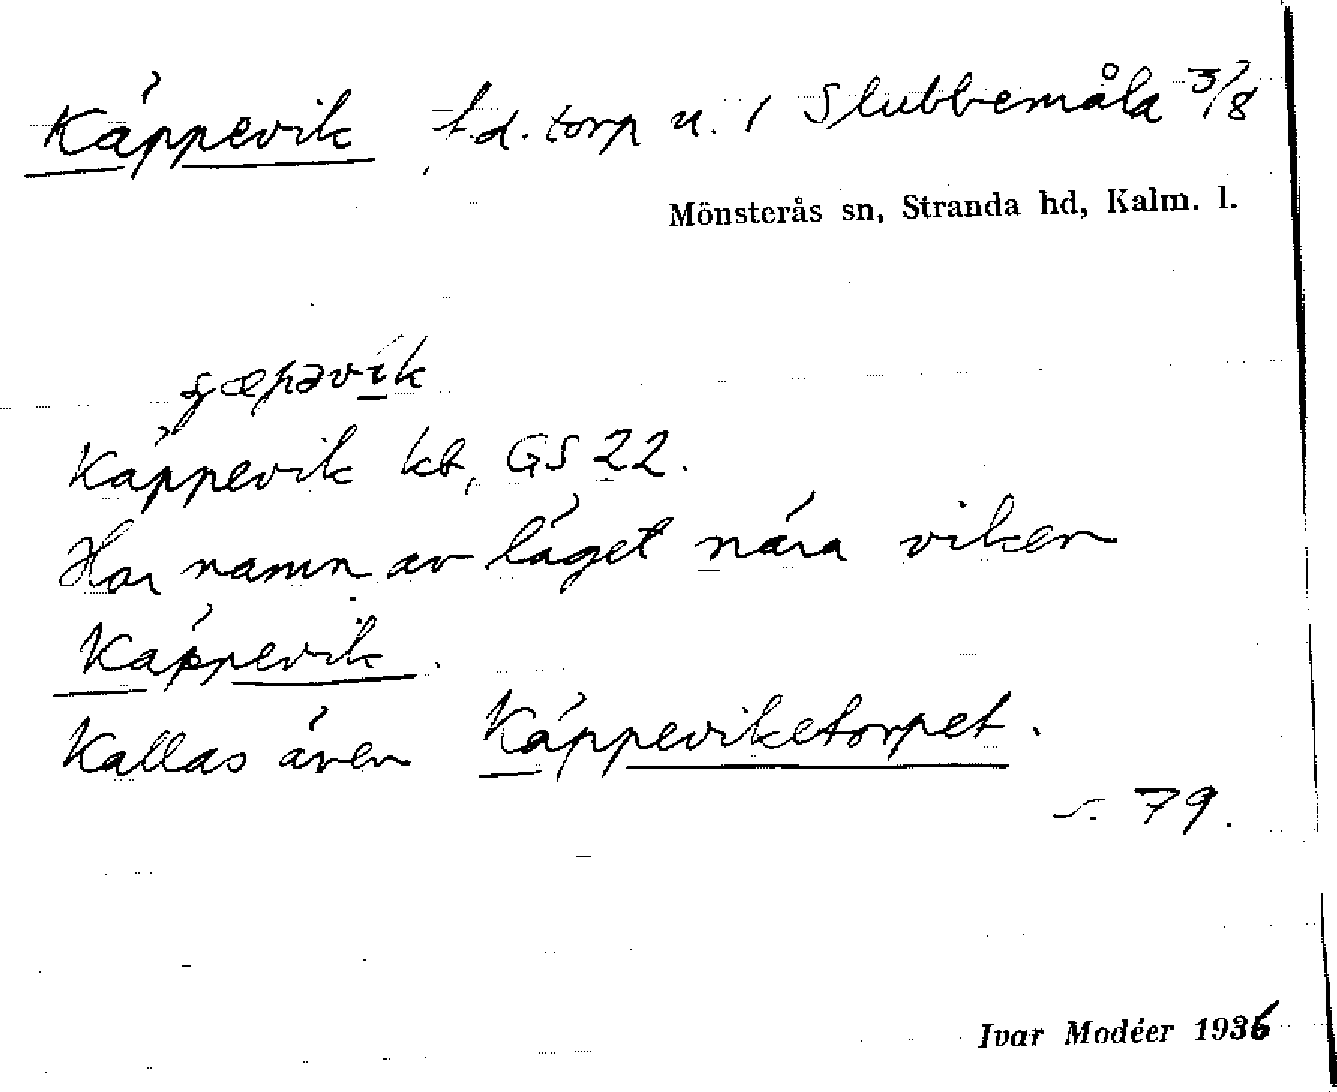 Käppevik f.d. torp u. 1 Slubbemåla 3/8
Mönsterås sn, Stranda hd, Kalm. l.
Käppevik kb, GS 22.
Har namn av läget nära viken
Käppevik.
Kallas även Käppeviketorpet.
s. 79.
Ivar Modéer 1936